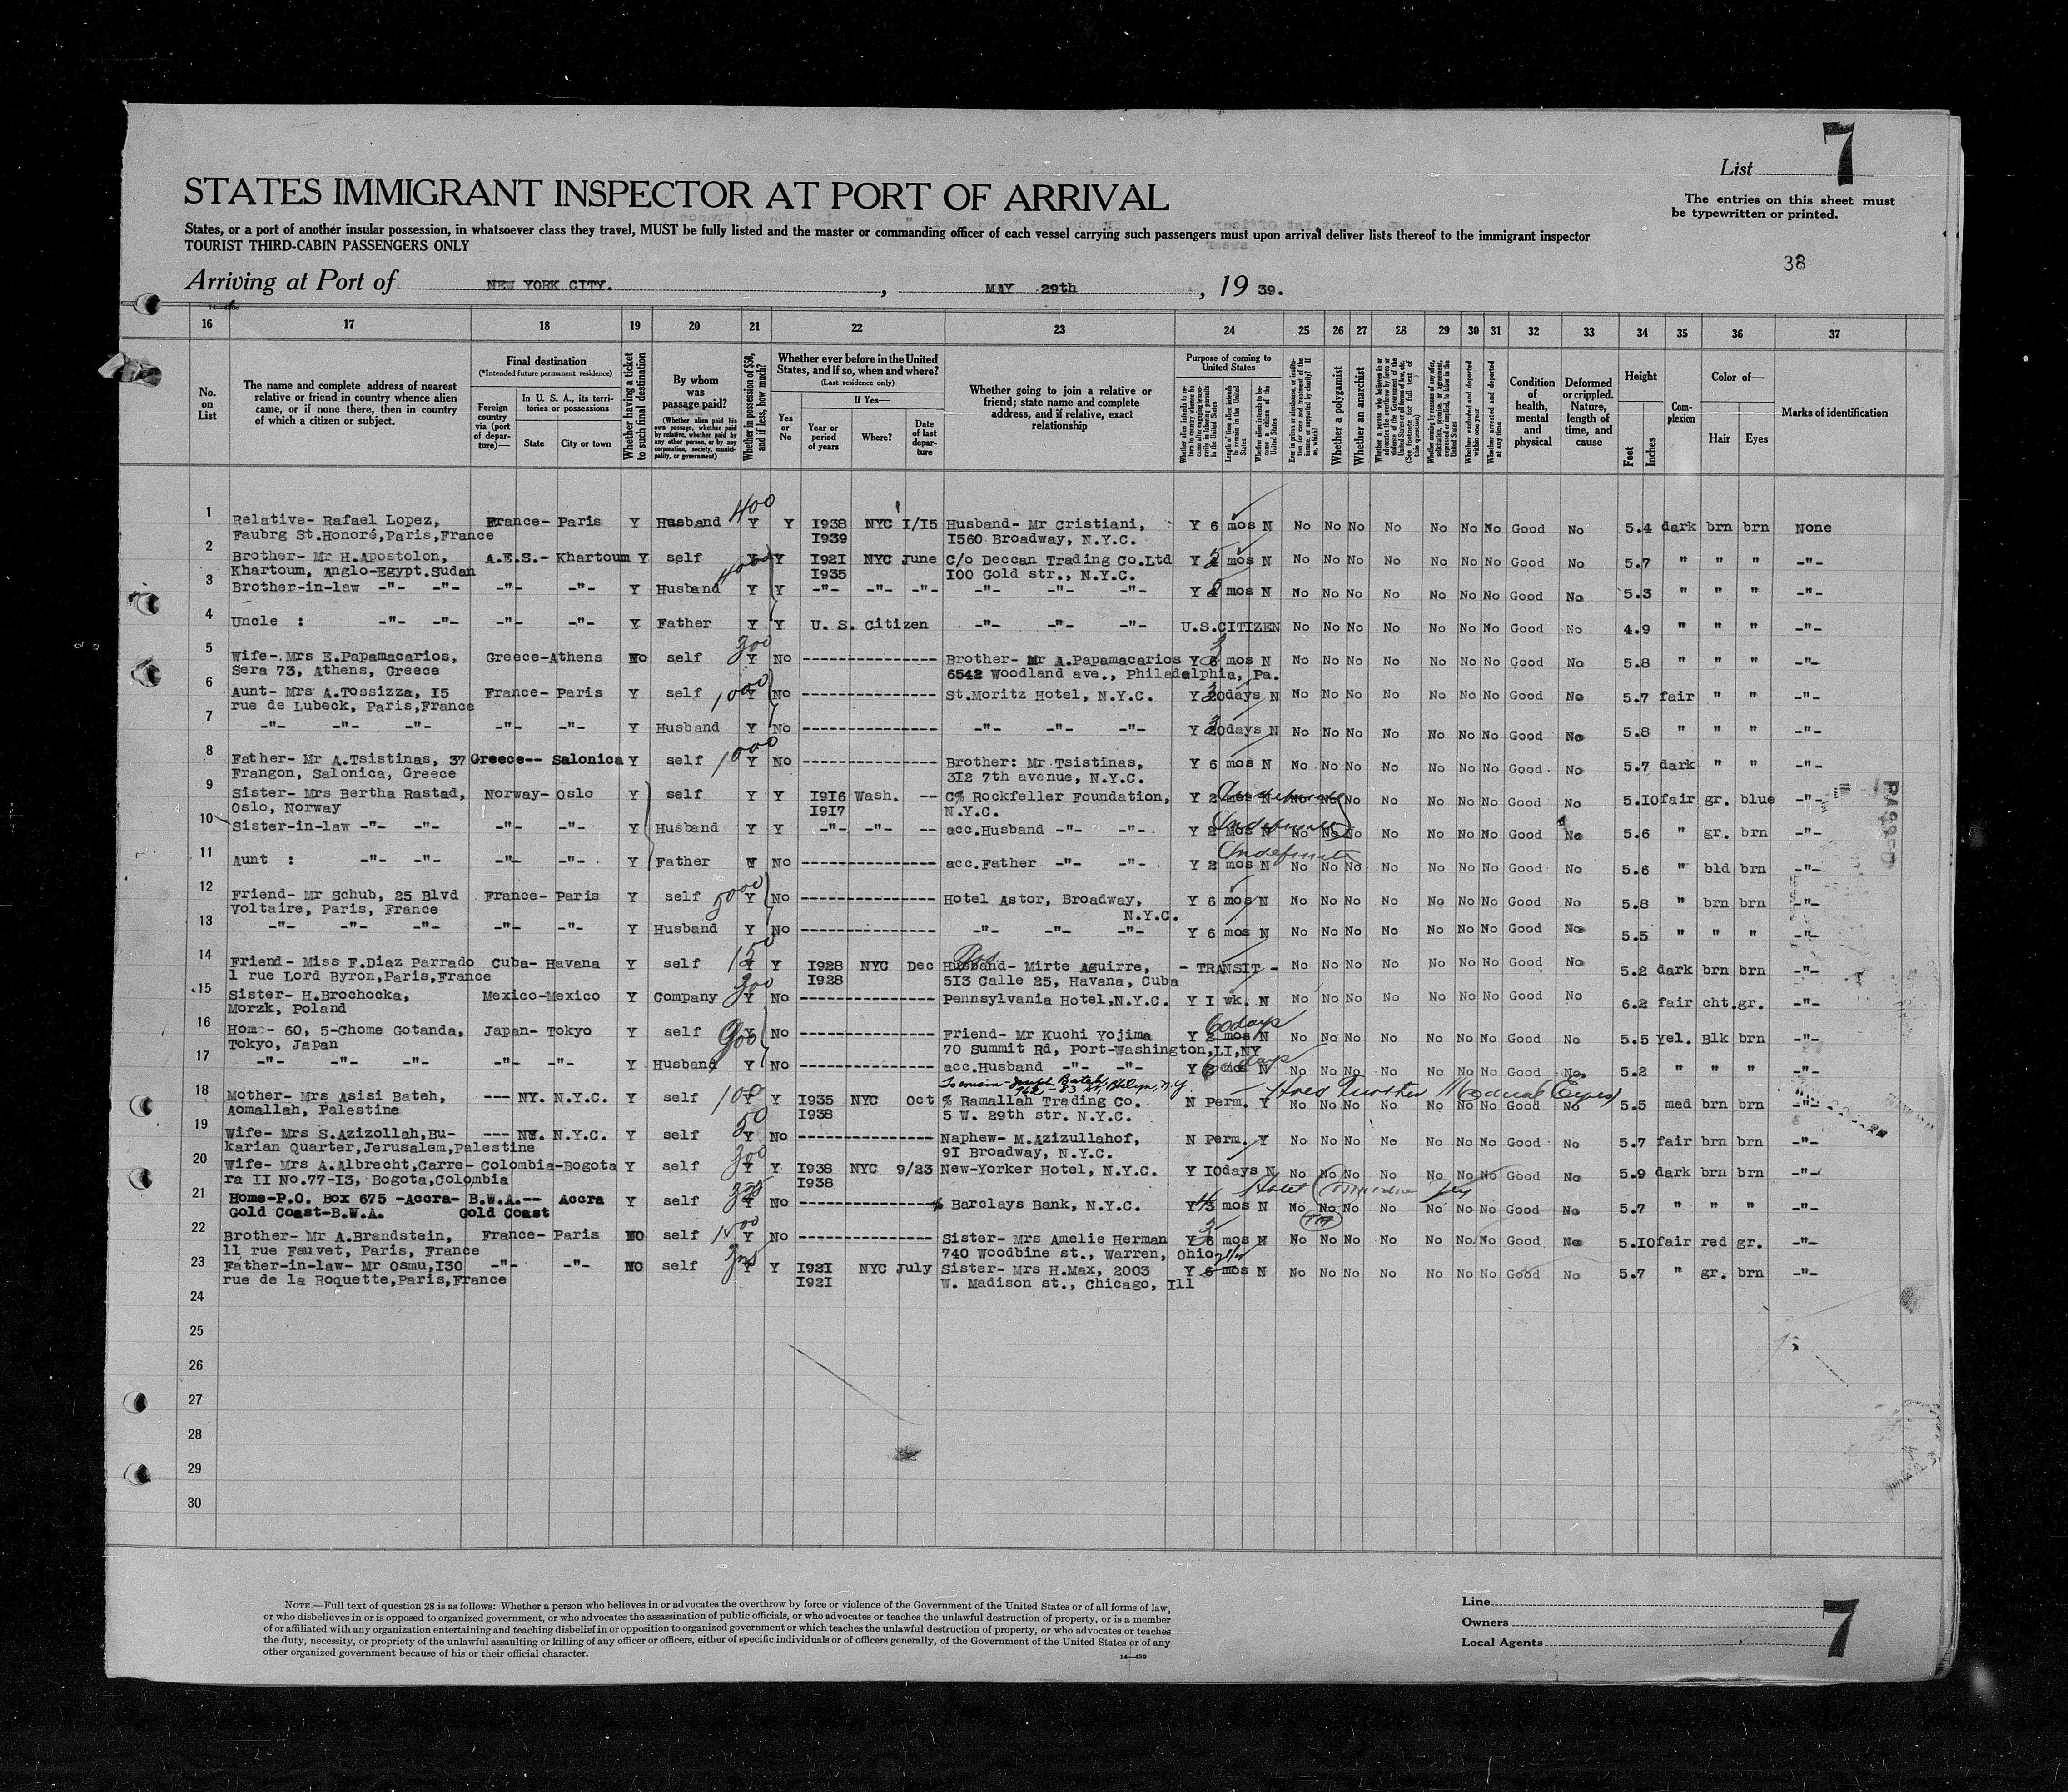 List 7
The entries on this sheet must
be typewritten or printed.
STATES IMMIGRANT INSPECTOR AT PORT OF ARRIVAL
States, or a port of another insular possession, in whatsoever class they travel, MUST be fully listed and the master or commanding officer of each vessel carrying such passengers must upon arrival deliver lists thereof to the immigrant inspector
TOURIST THIRD-CABIN PASSENGERS ONLY
38
Arriving at Port of NEW YORK CITY. , MAY 29th , 19 39.
16 17 18 19 20 21 22 23 24 25 26 27 28 29 30 31 32 33 34 35 36 37
No. on List
The name and complete address of nearest relative or friend in country whence alien came, or if none there, then in country of which a citizen or subject.
Final destination
(*Intended future permanent residence)
Foreign country via (port of departure)—
In U. S. A., its territories or possessions
State City or town
Whether having a ticket to such final destination
By whom was passage paid?
(Whether alien paid his own passage, whether paid by relative, whether paid by any other person, or by any corporation, society, municipality, or government)
Whether in possession of $50, and if less, how much?
Whether ever before in the United States, and if so, when and where?
(Last residence only)
Yes or No
If Yes—
Year or period of years Where? Date of last departure
Whether going to join a relative or friend; state name and complete address, and if relative, exact relationship
Purpose of coming to United States
Whether a polygamist
Whether an anarchist
Condition of health, mental and physical
Deformed or crippled. Nature, length of time, and cause
Height
Feet Inches
Complexion
Color of—
Hair Eyes
Marks of identification
1 Relative- Rafael Lopez, France- Paris Y Husband 400 Y Y 1938 NYC 1/15 Husband- Mr Cristiani, Y 6 mos N No No No No No No No Good No 5.4 dark brn brn None
Faubrg St.Honoré,Paris,France 1939 1560 Broadway, N.Y.C.
2 Brother- Mr H.Apostolon, A.E.S.- Khartoum Y self Y Y 1921 NYC June C/o Deccan Trading Co.Ltd Y mos N No No No No No No No Good No 5.7 " " " -"-
Khartoum, Anglo-Egypt.Sudan 1935 100 Gold str., N.Y.C.
3 Brother-in-law -"- -"- -"- -"- Y Husband Y Y -"- -"- -"- -"- -"- -"- Y mos N No No No No No No No Good No 5.3 " " " -"-
4 Uncle : -"- -"- -"- -"- Y Father Y Y U. S. Citizen -"- -"- -"- U.S.CITIZEN No No No No No No No Good No 4.9 " " " -"-
5 Wife- Mrs E.Papamacarios, Greece-Athens No self 300 Y No ---------------- Brother- Mr A.Papamacarios Y 6 mos N No No No No No No No Good No 5.8 " " " -"-
Sera 73, Athens, Greece 6542 Woodland ave., Philadelphia, Pa.
6 Aunt- Mrs A.Tossizza, 15 France- Paris Y self 1,000 Y No ---------------- St.Moritz Hotel, N.Y.C. Y 20days N No No No No No No No Good No 5.7 fair " " -"-
rue de Lubeck, Paris,France
7 -"- -"- -"- -"- -"- Y Husband Y No ---------------- -"- -"- -"- Y 20days N No No No No No No No Good No 5.8 " " " -"-
8 Father- Mr A.Tsistinas, 37 Greece-- Salonica Y self 1000 Y No ---------------- Brother: Mr Tsistinas, Y 6 mos N No No No No No No No Good No 5.7 dark " " -"-
Frangon, Salonica, Greece 312 7th avenue, N.Y.C.
9 Sister- Mrs Bertha Rastad, Norway- Oslo Y self Y Y 1916 Wash. -- C% Rockfeller Foundation, Y 2 mos N Indefinite No No No No No No No Good No 5.10 fair gr. blue -"-
Oslo, Norway 1917 N.Y.C.
10 Sister-in-law -"- -"- -"- -"- Y Husband Y Y -"- -"- -- acc.Husband -"- -"- Y 2 mos N Indefinite No No No No No No No Good No 5.6 " gr. brn -"-
11 Aunt : -"- -"- -"- -"- Y Father Y No ---------------- acc.Father -"- -"- Y 2 mos N Indefinite No No No No No No No Good No 5.6 " bld brn -"-
12 Friend- Mr Schub, 25 Blvd France- Paris Y self 5000 Y No ---------------- Hotel Astor, Broadway, Y 6 mos N No No No No No No No Good No 5.8 " brn brn -"-
Voltaire, Paris, France N.Y.C.
13 -"- -"- -"- -"- -"- Y Husband Y No ---------------- -"- -"- -"- Y 6 mos N No No No No No No No Good No 5.5 " " " -"-
14 Friend- Miss F.Diaz Parrado Cuba- Havana Y self 150 Y Y 1928 NYC Dec Husband- Mirte Aguirre, - TRANSIT - No No No No No No No Good No 5.2 dark brn brn -"-
1 rue Lord Byron,Paris,France 1928 513 Calle 25, Havana, Cuba
15 Sister- H.Brochocka, Mexico-Mexico Y Company 300 Y No ---------------- Pennsylvania Hotel,N.Y.C. Y 1 wk. N No No No No No No No Good No 6.2 fair cht. gr. -"-
Morzk, Poland
16 Home- 60, 5-Chome Gotanda, Japan- Tokyo Y self 900 Y No ---------------- Friend- Mr Kuchi Yojima Y 2 mos N 60 days No No No No No No No Good No 5.5 Yel. Blk brn -"-
Tokyo, Japan 70 Summit Rd, Port-Washington,LI,NY
17 -"- -"- -"- -"- -"- Y Husband Y No ---------------- acc.Husband -"- -"- Y mos N 60 days No No No No No No No Good No 5.2 " " " -"-
To cousin - Joseph Bateh, 962 - 83 St, Bklyn, N.Y.
18 Mother- Mrs Asisi Bateh, --- NY. N.Y.C. Y self 100 Y Y 1935 NYC Oct % Ramallah Trading Co. N Perm. Y No No No No No No No Good No 5.5 med brn brn -"-
Aomallah, Palestine 1938 5 W. 29th str. N.Y.C.
19 Wife- Mrs S.Azizollah,Bu- --- NY. N.Y.C. Y self 50 Y No ---------------- Naphew- M.Azizullahof, N Perm. Y No No No No No No No Good No 5.7 fair brn brn -"-
karian Quarter,Jerusalem,Palestine 91 Broadway, N.Y.C.
20 Wife- Mrs A.Albrecht,Carre- Colombia-Bogota Y self 300 Y Y 1938 NYC 9/23 New-Yorker Hotel, N.Y.C. Y 10days N No No No No No No No Good No 5.9 dark brn brn -"-
ra II No.77-13, Bogota,Colombia 1938
21 Home-P.O. Box 675 -Accra- B.W.A.-- Accra Y self Y No ---------------- % Barclays Bank, N.Y.C. Y mos N No No No No No No No Good No 5.7 " " " -"-
Gold Coast-B.W.A. Gold Coast
22 Brother- Mr A.Brandstein, France- Paris NO self Y No ---------------- Sister- Mrs Amelie Herman Y 6 mos N No No No No No No No Good No 5.10 fair red gr. -"-
11 rue Fauvet, Paris, France 740 Woodbine st., Warren, Ohio
23 Father-in-law- Mr Osmu,130 -"- -"- NO self Y Y 1921 NYC July Sister- Mrs H.Max, 2003 Y 6 mos N No No No No No No No Good No 5.7 " gr. brn -"-
rue de la Roquette,Paris,France 1921 W. Madison st., Chicago, Ill
24
25
26
27
28
29
30
PASSED
NOTE.—Full text of question 28 is as follows: Whether a person who believes in or advocates the overthrow by force or violence of the Government of the United States or of all forms of law,
or who disbelieves in or is opposed to organized government, or who advocates the assassination of public officials, or who advocates or teaches the unlawful destruction of property, or is a member
of or affiliated with any organization entertaining and teaching disbelief in or opposition to organized government or which teaches the unlawful destruction of property, or who advocates or teaches
the duty, necessity, or propriety of the unlawful assaulting or killing of any officer or officers, either of specific individuals or of officers generally, of the Government of the United States or of any
other organized government because of his or their official character.
14—430
Line
Owners
Local Agents
7